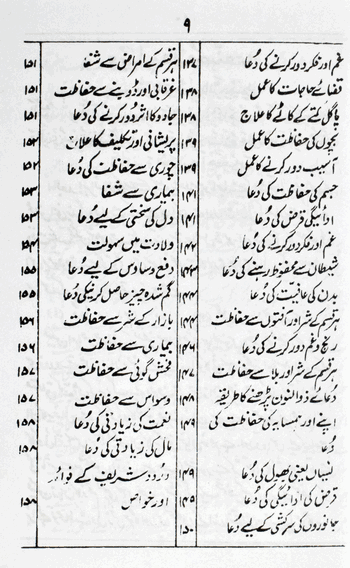 ۹
غم اور فکر دور کرنے کی دُعا ۱۳۷
قضائے حاجات کا عمل ۱۳۸
پاگل کتے کے کاٹے کا علاج ۱۳۸
بچوں کی حفاظت کا عمل ۱۳۹
آسیب دور کرنے کا عمل ۱۳۹
جسم کی حفاظت کی دُعا ۱۴۱
ادائیگی قرض کی دُعا ۱۴۱
غم اور فکر دور کرنے کی دُعا ۱۴۲
شیطان سے محفوظ رہنے کی دُعا ۱۴۳
بدن کی عافیت کی دُعا ۱۴۴
ہر قسم کے شر اور آفتوں سے حفاظت ۱۴۴
رنج و غم دور کرنے کی دُعا ۱۴۶
ہر قسم کے شر اور بلا سے حفاظت ۱۴۷
دُعائے ذوالنون پڑھنے کا طریقہ ۱۴۸
اپنے اور ہمسایہ کی حفاظت کی ۱۴۹
دُعا
نسیان یعنی بھول کی دُعا ۱۴۹
قرض کی ادائیگی کی دُعا ۱۴۵
جانوروں کی سرکشی کے لیے دُعا ۱۵۰
ہر قسم کے امراض سے شفا ۱۵۱
غرقابی اور ڈوبنے سے حفاظت ۱۵۱
جادو کا اثر دور کرنے کی دُعا ۱۵۱
پریشانی اور تکلیف کا علاج ۱۵۲
چوری سے حفاظت کی دُعا ۱۵۲
بیماری سے شفا ۱۵۳
دل کی سختی کے لیے دُعا ۱۵۳
ولادت میں سہولت ۱۵۴
دفع وساوس کے لیے دُعا ۱۵۵
گم شدہ چیز حاصل کرنیکی دُعا ۱۵۵
بازار کے شر سے حفاظت ۱۵۶
بیماری سے حفاظت ۱۵۶
فحش گوئی سے حفاظت ۱۵۷
وسواس سے حفاظت ۱۵۷
نعمت کی زیادتی کی دُعا ۱۵۸
مال کی زیادتی کی دُعا ۱۵۸
درود شریف کے فوائد
اور خواص ۱۵۸